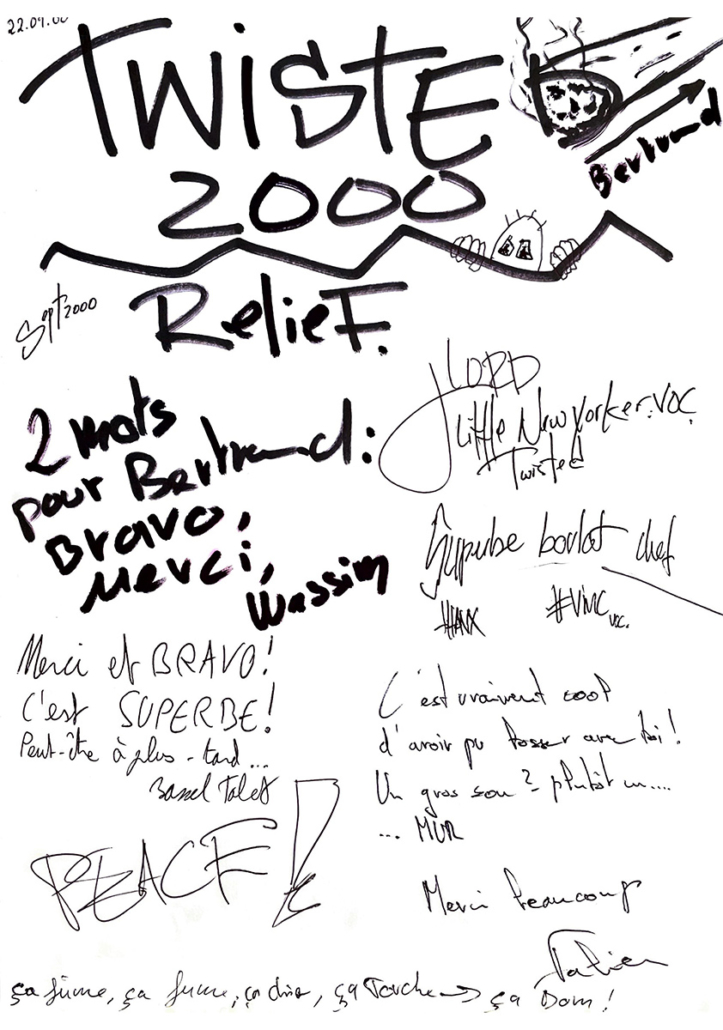 22.09.00
TWISTED
2000
Bertrand
Sept 2000
RelieF.
2 mots
pour Bertrand:
Bravo,
Merci,
Wassim
LORD
Little New Yorker.VOC.
Twisted
Superbe boulot chef
#VINC voc.
Merci et BRAVO!
C'est SUPERBE!
Peut-être à plus-tard...
Bassel
PEACE!
C'est vraiment cool
d'avoir pu bosser avec toi!
Un gros son? plutôt un....
... MUR
Merci beaucoup
Fabien
ça fume, ça fume, ça